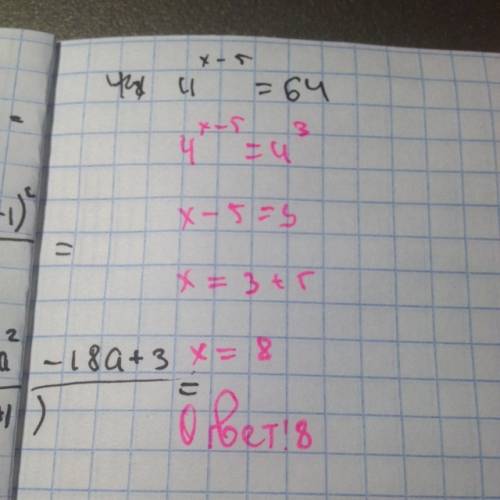 4^{x-5} = 64
4^{x-5} = 4^3
-1)^2
=
x - 5 = 3
x = 3 + 5
a^2 - 18a + 3
=
+1)
x = 8
Ответ! 8